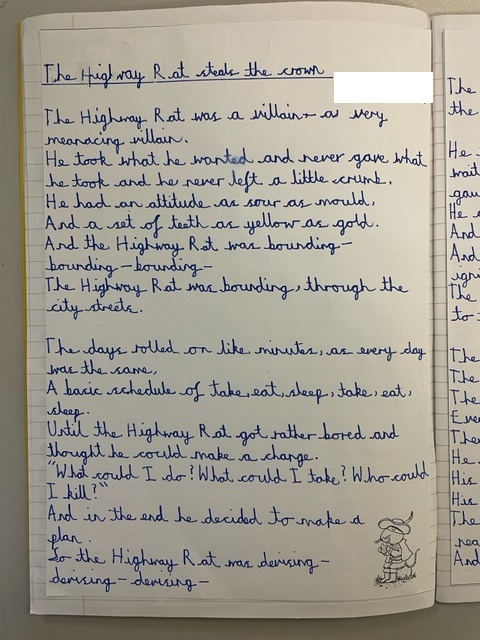 The Highway Rat steals the crown
The Highway Rat was a villain- a very
meanacing villain.
He took what he wanted and never gave what
he took and he never left a little crumb.
He had an attitude as sour as mould,
And a set of teeth as yellow as gold.
And the Highway Rat was bounding-
bounding-bounding-
The Highway Rat was bounding, through the
city streets.
The days rolled on like minutes, as every day
was the same,
A basic schedule of take, eat, sleep, take, eat,
sleep.
Until the Highway Rat got rather bored and
thought he could make a change.
"What could I do? What could I take? Who could
I kill?"
And in the end he decided to make a
plan.
So the Highway Rat was devising-
devising-devising-
The
the
He
wait
gau
He
And
And
igni
The
to
The
The
The
Eve
The
He
His
His
The
nea
And